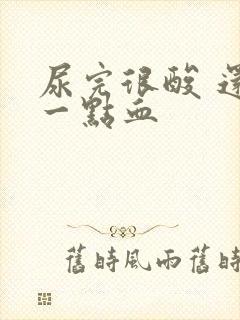 尿完很酸 還
一點血
舊時風雨舊時